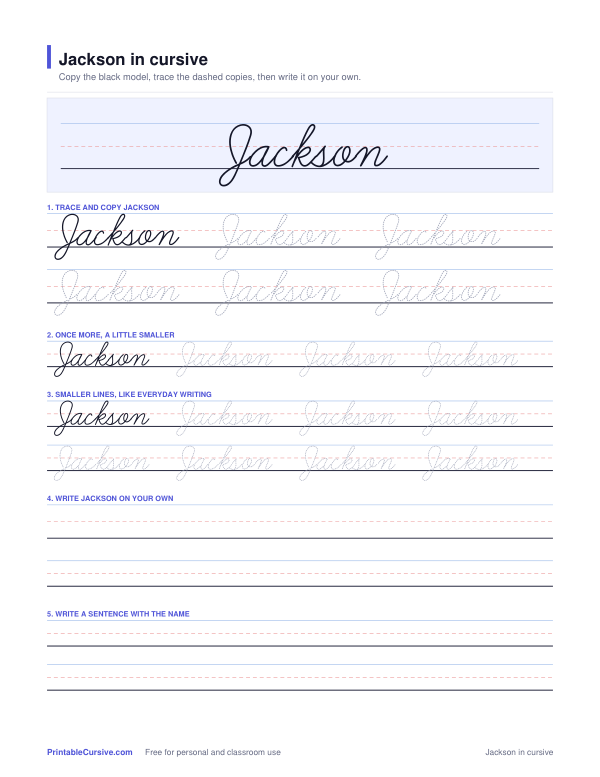 Jackson in cursive
Copy the black model, trace the dashed copies, then write it on your own.
Jackson
1. TRACE AND COPY JACKSON
Jackson Jackson Jackson
Jackson Jackson Jackson
2. ONCE MORE, A LITTLE SMALLER
Jackson Jackson Jackson Jackson
3. SMALLER LINES, LIKE EVERYDAY WRITING
Jackson Jackson Jackson Jackson
Jackson Jackson Jackson Jackson
4. WRITE JACKSON ON YOUR OWN
5. WRITE A SENTENCE WITH THE NAME
PrintableCursive.com Free for personal and classroom use Jackson in cursive